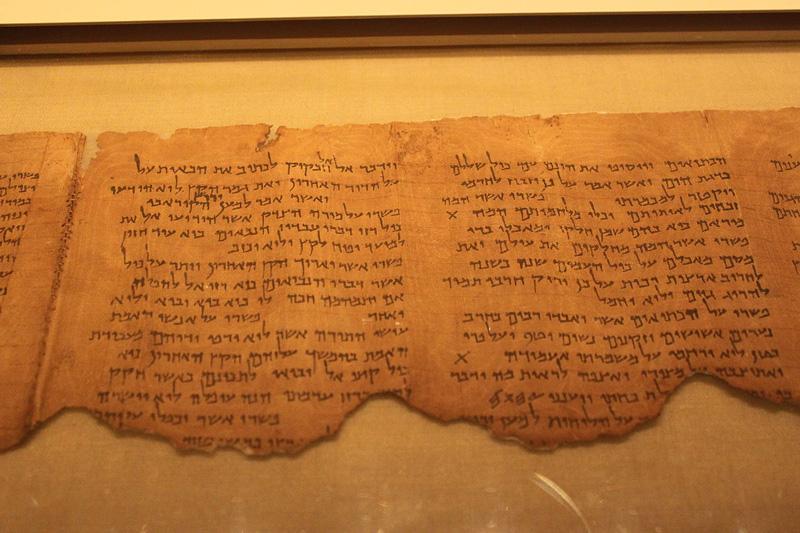 הכתיאים ויוסיפו את הונם עם כול שללם
כדגת הים ואשר אמר על כן יזבח לחרמו
ויקטר למכמרתו פשרו אשר המה
זבחים לאותותם וכלי מלחמותם המה X
מוראם כיא בהם שמן חלקו ומאכלו ברי
פשרו אשר המה מחלקים את עולם ואת
מסם מאכלם על כול העמים שנה בשנה
לחריב ארצות רבות על כן יריק חרבו תמיד
להרוג גוים ולוא יחמל
פשרו על הכתיאים אשר יאבדו רבים בחרב
נערים אשישים וזקנים נשים וטף ועל פרי
בטן לוא ירחמו על משמרתי אעמודה X
ואתיצבה על מצורי ואצפה לראות מה ידבר
תוכחתי ויענני 𐤉𐤄𐤅𐤄
על הלוחות למען ירוץ
וידבר אל אל חבקוק לכתוב את הבאות על
על הדור האחרון ואת גמר הקץ לוא הודעו
ואשר אמר למען ירוץ הקורא בו
פשרו על מורה הצדק אשר הודיעו אל את
כול רזי דברי עבדיו הנבאים כיא עוד חזון
למועד יפח לקץ ולוא יכזב
פשרו אשר יארוך הקץ האחרון ויתר על כול
אשר דברו הנביאים כיא רזי אל להפלה
אם יתמהמה חכה לו כיא בוא יבוא ולוא
יאחר פשרו על אנשי האמת
עושי התורה אשר לוא ירפו ידיהם מעבודת
האמת בהמשך עליהם הקץ האחרון כיא
כול קיצי אל יבואו לתכונם כאשר חקק
ערמתו הנה עופלה לוא יושרה
פשרו אשר יכפלו